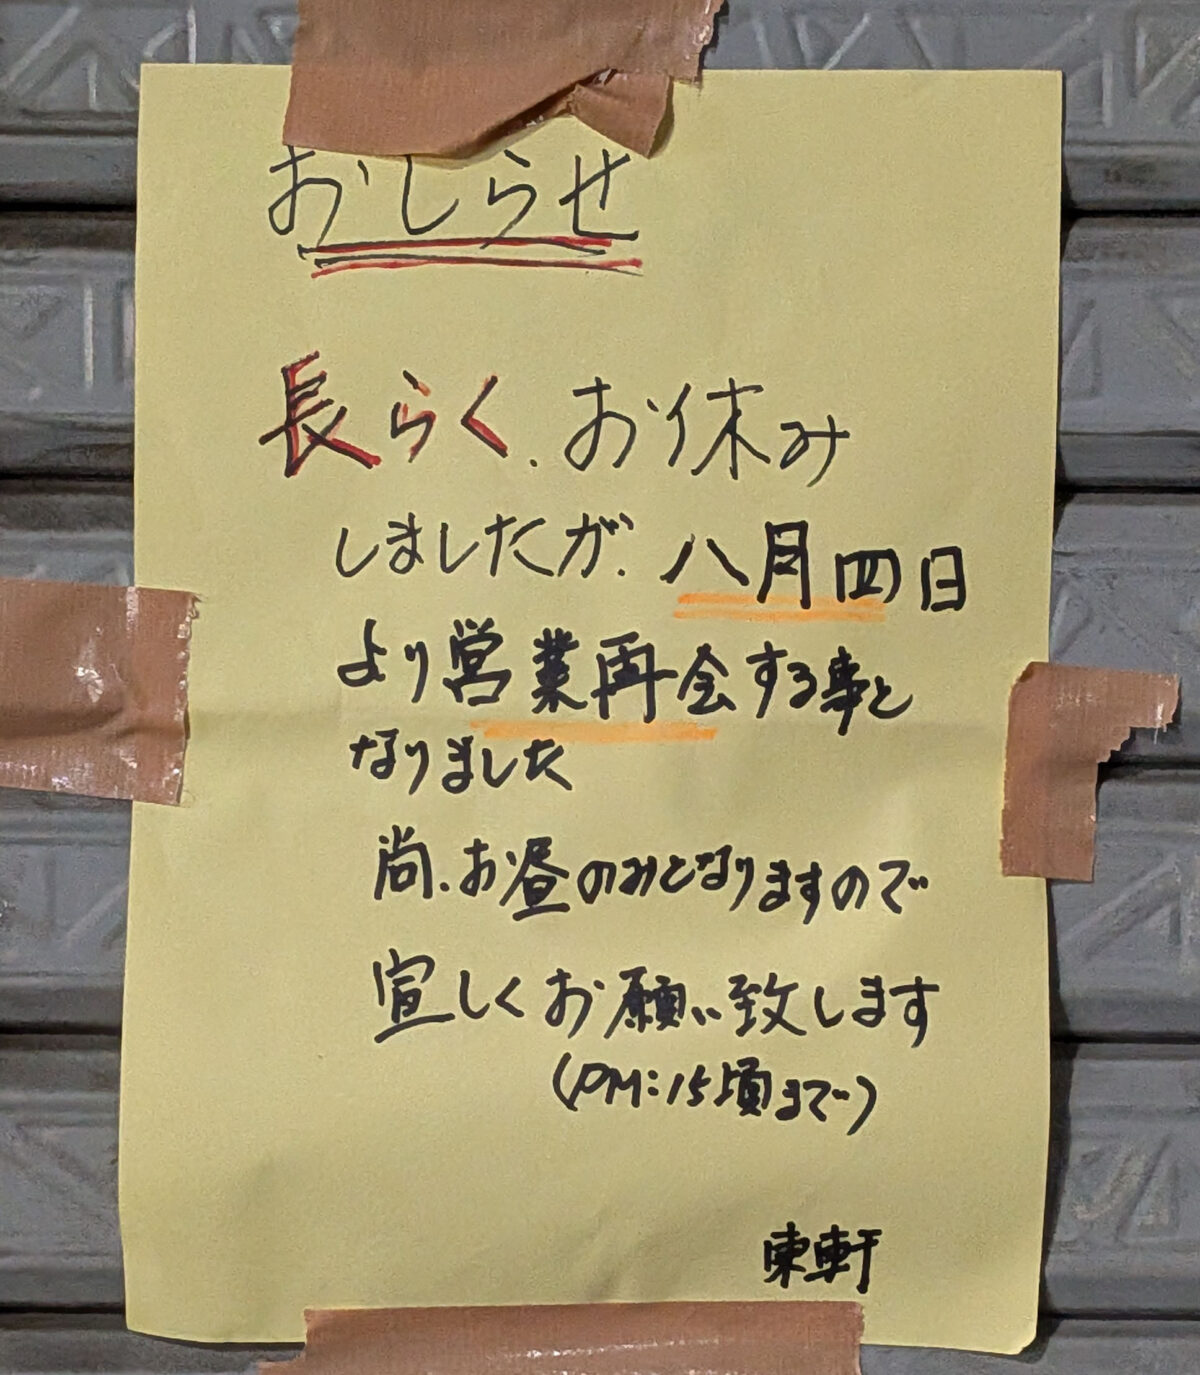 おしらせ
長らく、お休み
しましたが、八月四日
より営業再会する事と
なりました
尚、お昼のみとなりますので
宜しくお願い致します
(PM:15頃まで)
東軒